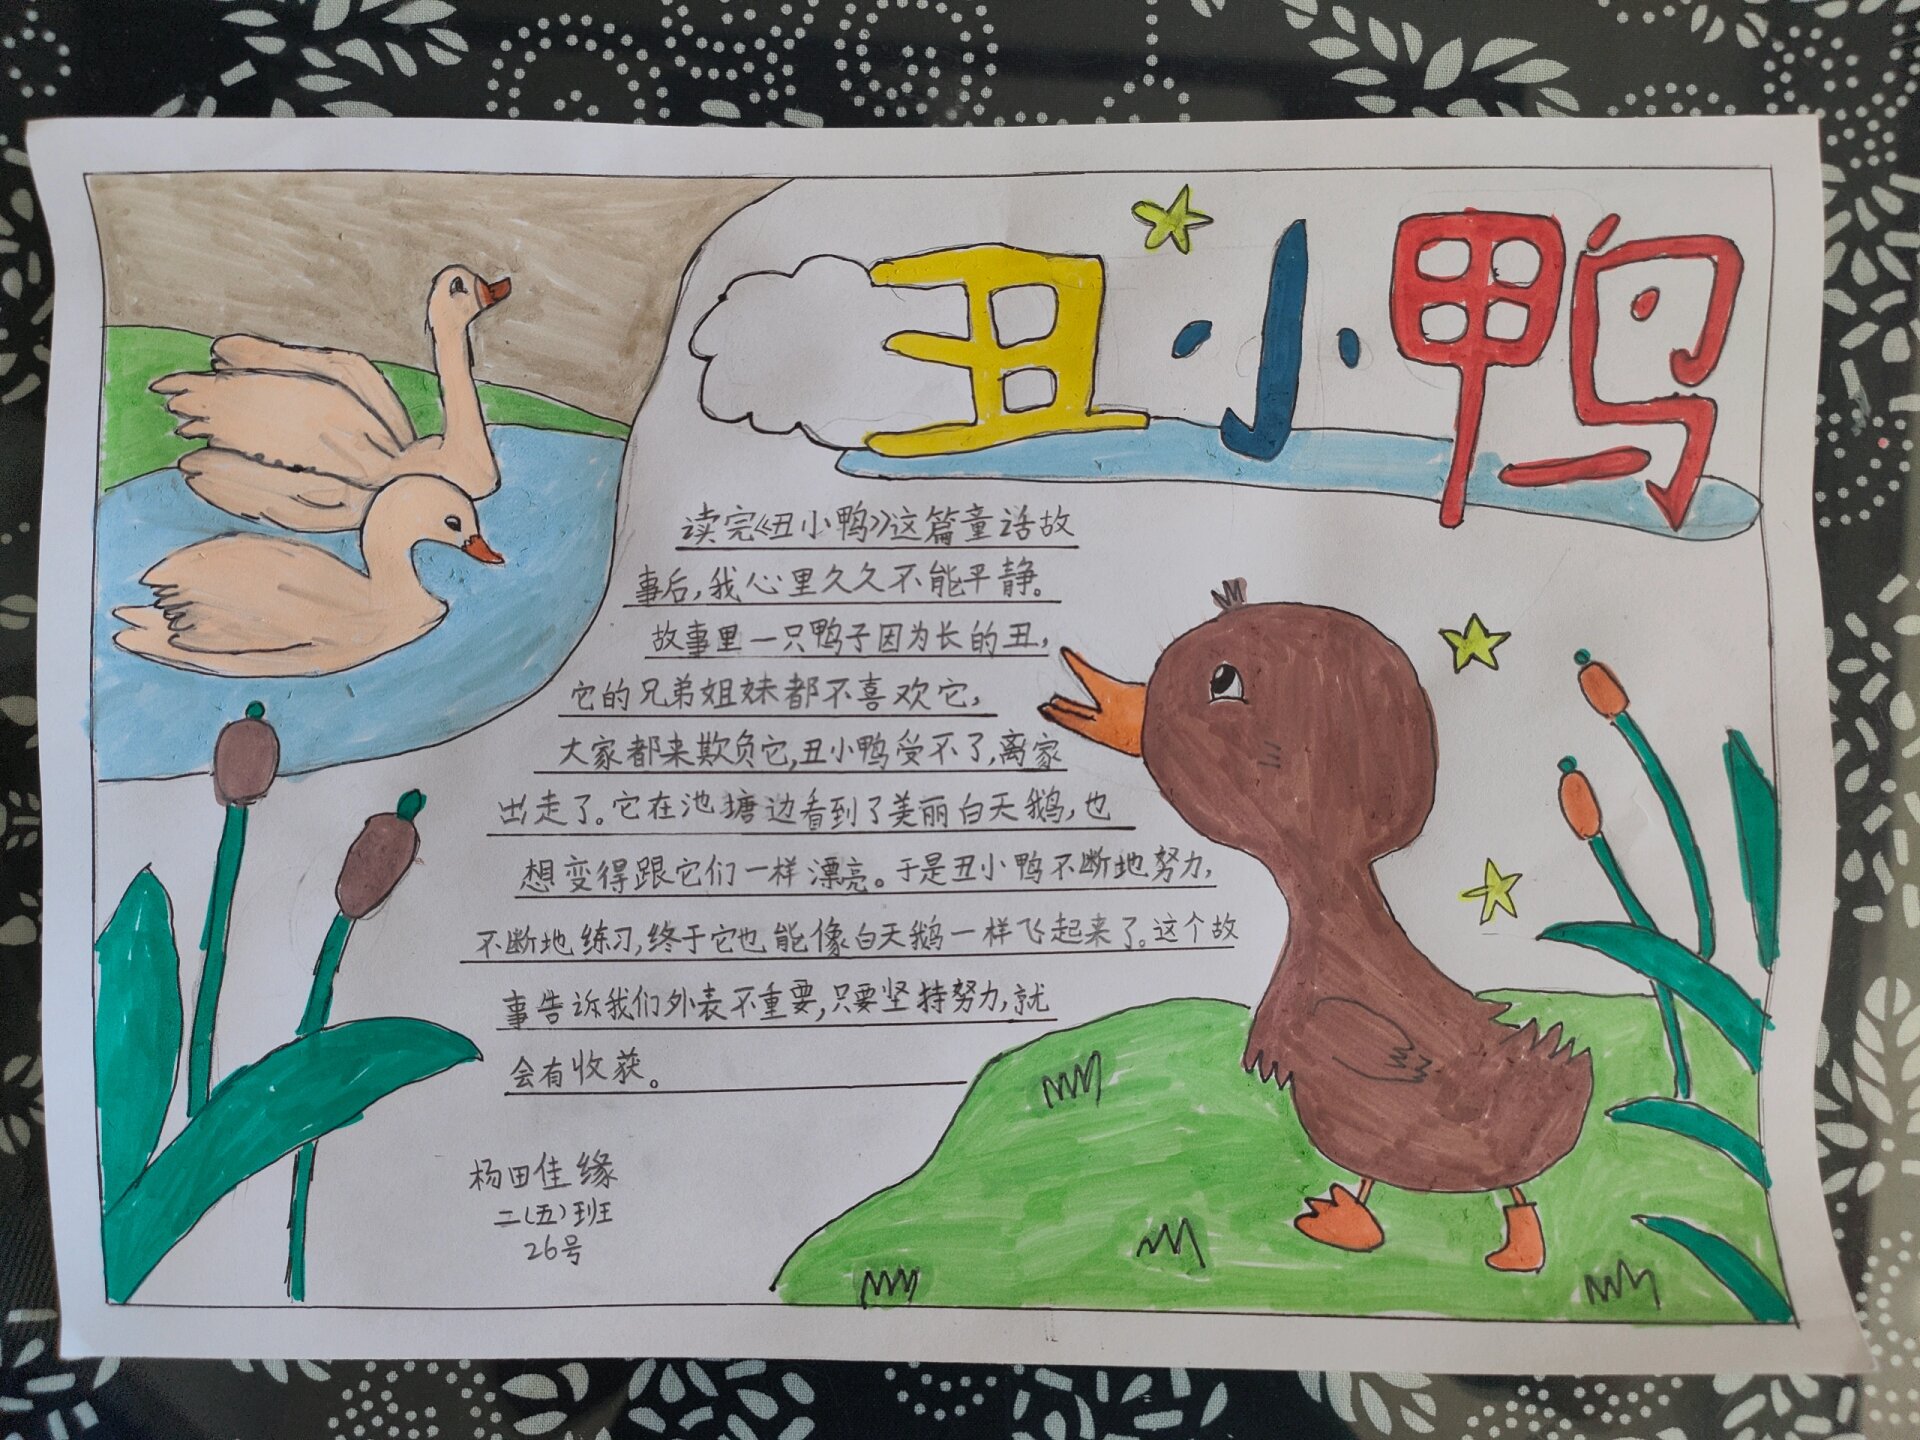 丑小鸭
读完《丑小鸭》这篇童话故
事后,我心里久久不能平静。
故事里一只鸭子因为长的丑,
它的兄弟姐妹都不喜欢它,
大家都来欺负它,丑小鸭受不了,离家
出走了。它在池塘边看到了美丽白天鹅,也
想变得跟它们一样漂亮。于是丑小鸭不断地努力,
不断地练习,终于它也能像白天鹅一样飞起来了。这个故
事告诉我们外表不重要,只要坚持努力,就
会有收获。
杨田佳缘
二(五)班
26号